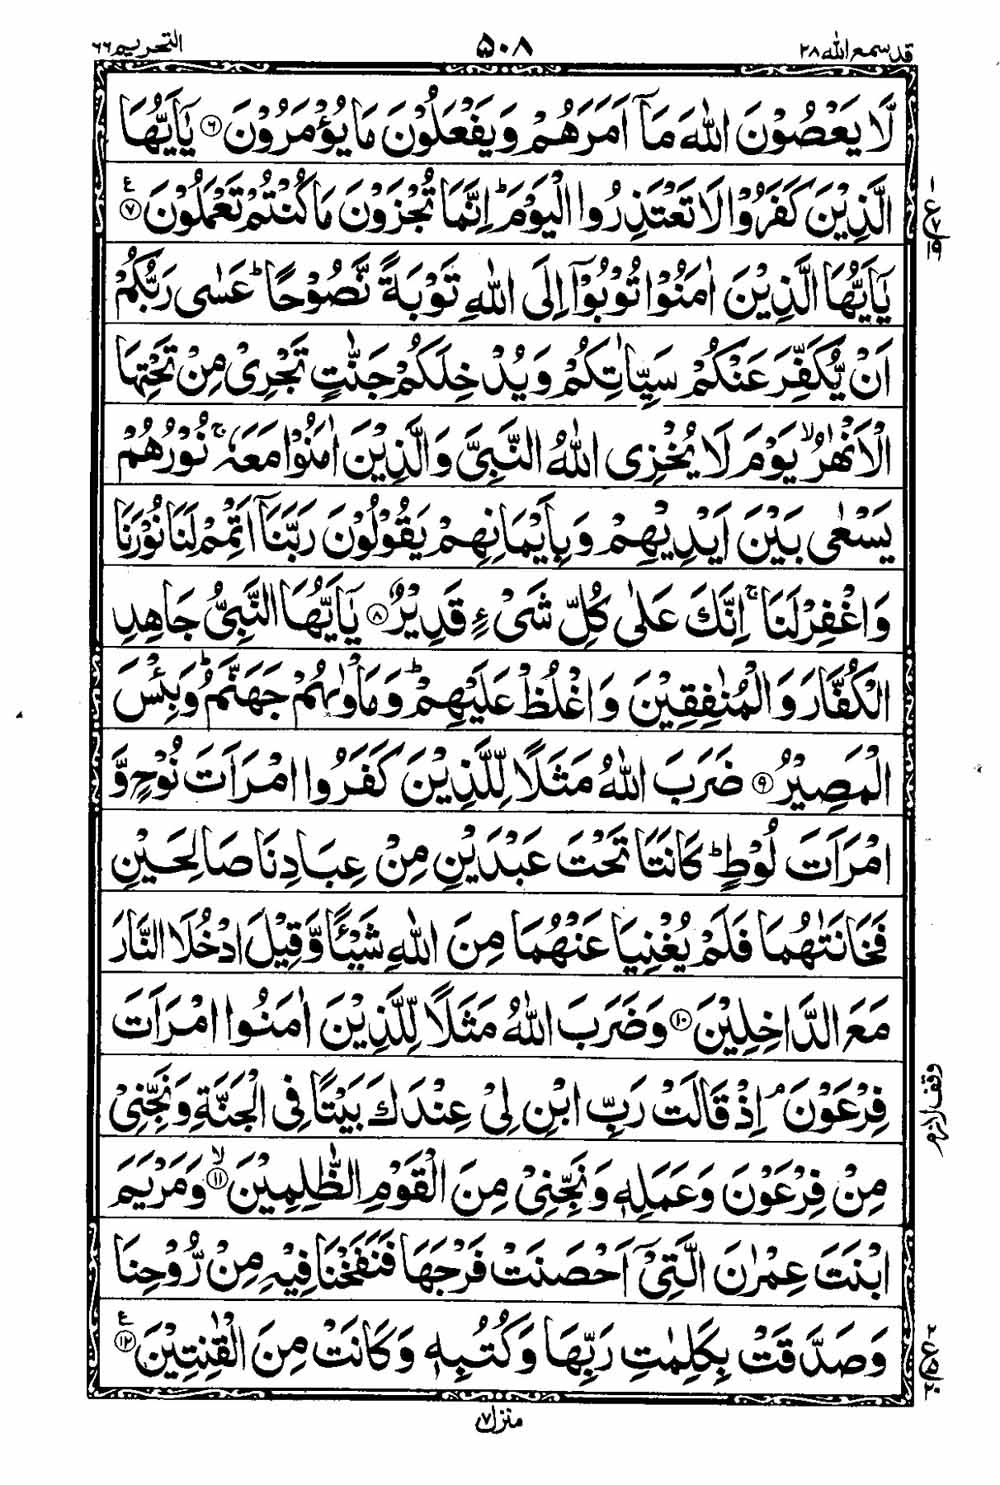 قد سمع الله ٢٨ ۵۰۸ التحريم ٦٦
لَّا يَعْصُوْنَ اللّٰهَ مَاۤ اَمَرَهُمْ وَيَفْعَلُوْنَ مَا يُؤْمَرُوْنَ ۝٦ يٰۤاَيُّهَا
الَّذِيْنَ كَفَرُوْا لَا تَعْتَذِرُوا الْيَوْمَ ؕ اِنَّمَا تُجْزَوْنَ مَا كُنْتُمْ تَعْمَلُوْنَ ۝٧ ع
يٰۤاَيُّهَا الَّذِيْنَ اٰمَنُوْا تُوْبُوْۤا اِلَى اللّٰهِ تَوْبَةً نَّصُوْحًا ؕ عَسٰى رَبُّكُمْ
اَنْ يُّكَفِّرَ عَنْكُمْ سَيِّاٰتِكُمْ وَيُدْخِلَكُمْ جَنّٰتٍ تَجْرِيْ مِنْ تَحْتِهَا
الْاَنْهٰرُ ۙ يَوْمَ لَا يُخْزِى اللّٰهُ النَّبِيَّ وَالَّذِيْنَ اٰمَنُوْا مَعَهٗ ۚ نُوْرُهُمْ
يَسْعٰى بَيْنَ اَيْدِيْهِمْ وَبِاَيْمَانِهِمْ يَقُوْلُوْنَ رَبَّنَاۤ اَتْمِمْ لَنَا نُوْرَنَا
وَاغْفِرْ لَنَا ۚ اِنَّكَ عَلٰى كُلِّ شَيْءٍ قَدِيْرٌ ۝٨ يٰۤاَيُّهَا النَّبِيُّ جَاهِدِ
الْكُفَّارَ وَالْمُنٰفِقِيْنَ وَاغْلُظْ عَلَيْهِمْ ؕ وَمَاْوٰىهُمْ جَهَنَّمُ ؕ وَبِئْسَ
الْمَصِيْرُ ۝٩ ضَرَبَ اللّٰهُ مَثَلًا لِّلَّذِيْنَ كَفَرُوا امْرَاَتَ نُوْحٍ وَّ
امْرَاَتَ لُوْطٍ ؕ كَانَتَا تَحْتَ عَبْدَيْنِ مِنْ عِبَادِنَا صَالِحَيْنِ
فَخَانَتٰهُمَا فَلَمْ يُغْنِيَا عَنْهُمَا مِنَ اللّٰهِ شَيْـًٔا وَّقِيْلَ ادْخُلَا النَّارَ
مَعَ الدَّاخِلِيْنَ ۝١٠ وَضَرَبَ اللّٰهُ مَثَلًا لِّلَّذِيْنَ اٰمَنُوا امْرَاَتَ
فِرْعَوْنَ ۘ اِذْ قَالَتْ رَبِّ ابْنِ لِيْ عِنْدَكَ بَيْتًا فِى الْجَنَّةِ وَنَجِّنِيْ
وقف لازم
مِنْ فِرْعَوْنَ وَعَمَلِهٖ وَنَجِّنِيْ مِنَ الْقَوْمِ الظّٰلِمِيْنَ ۙ ۝١١ وَمَرْيَمَ
ابْنَتَ عِمْرٰنَ الَّتِيْۤ اَحْصَنَتْ فَرْجَهَا فَنَفَخْنَا فِيْهِ مِنْ رُّوْحِنَا
وَصَدَّقَتْ بِكَلِمٰتِ رَبِّهَا وَكُتُبِهٖ وَكَانَتْ مِنَ الْقٰنِتِيْنَ ۝١٢ ع
منزل ٧